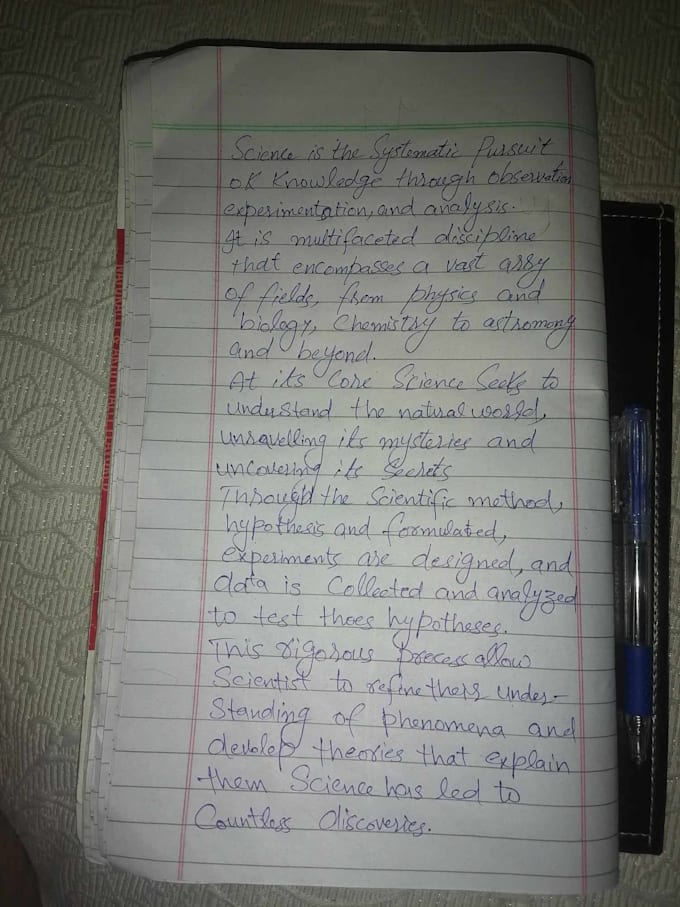 Science is the Systematic Pursuit
of Knowledge through observation
experimentation, and analysis.
It is multifaceted discipline
that encompasses a vast array
of fields, from physics and
biology, Chemistry to astromony
and beyond.
At its Core Science Seeks to
understand the natural world,
unravelling its mysteries and
uncovering its Secrets
Through the Scientific method,
hypothesis and formulated,
experiments are designed, and
data is Collected and analyzed
to test thoes hypotheses.
This rigorous Process allow
Scientist to refine their under-
standing of phenomena and
devolep theories that explain
them Science has led to
Countless Discoveries.